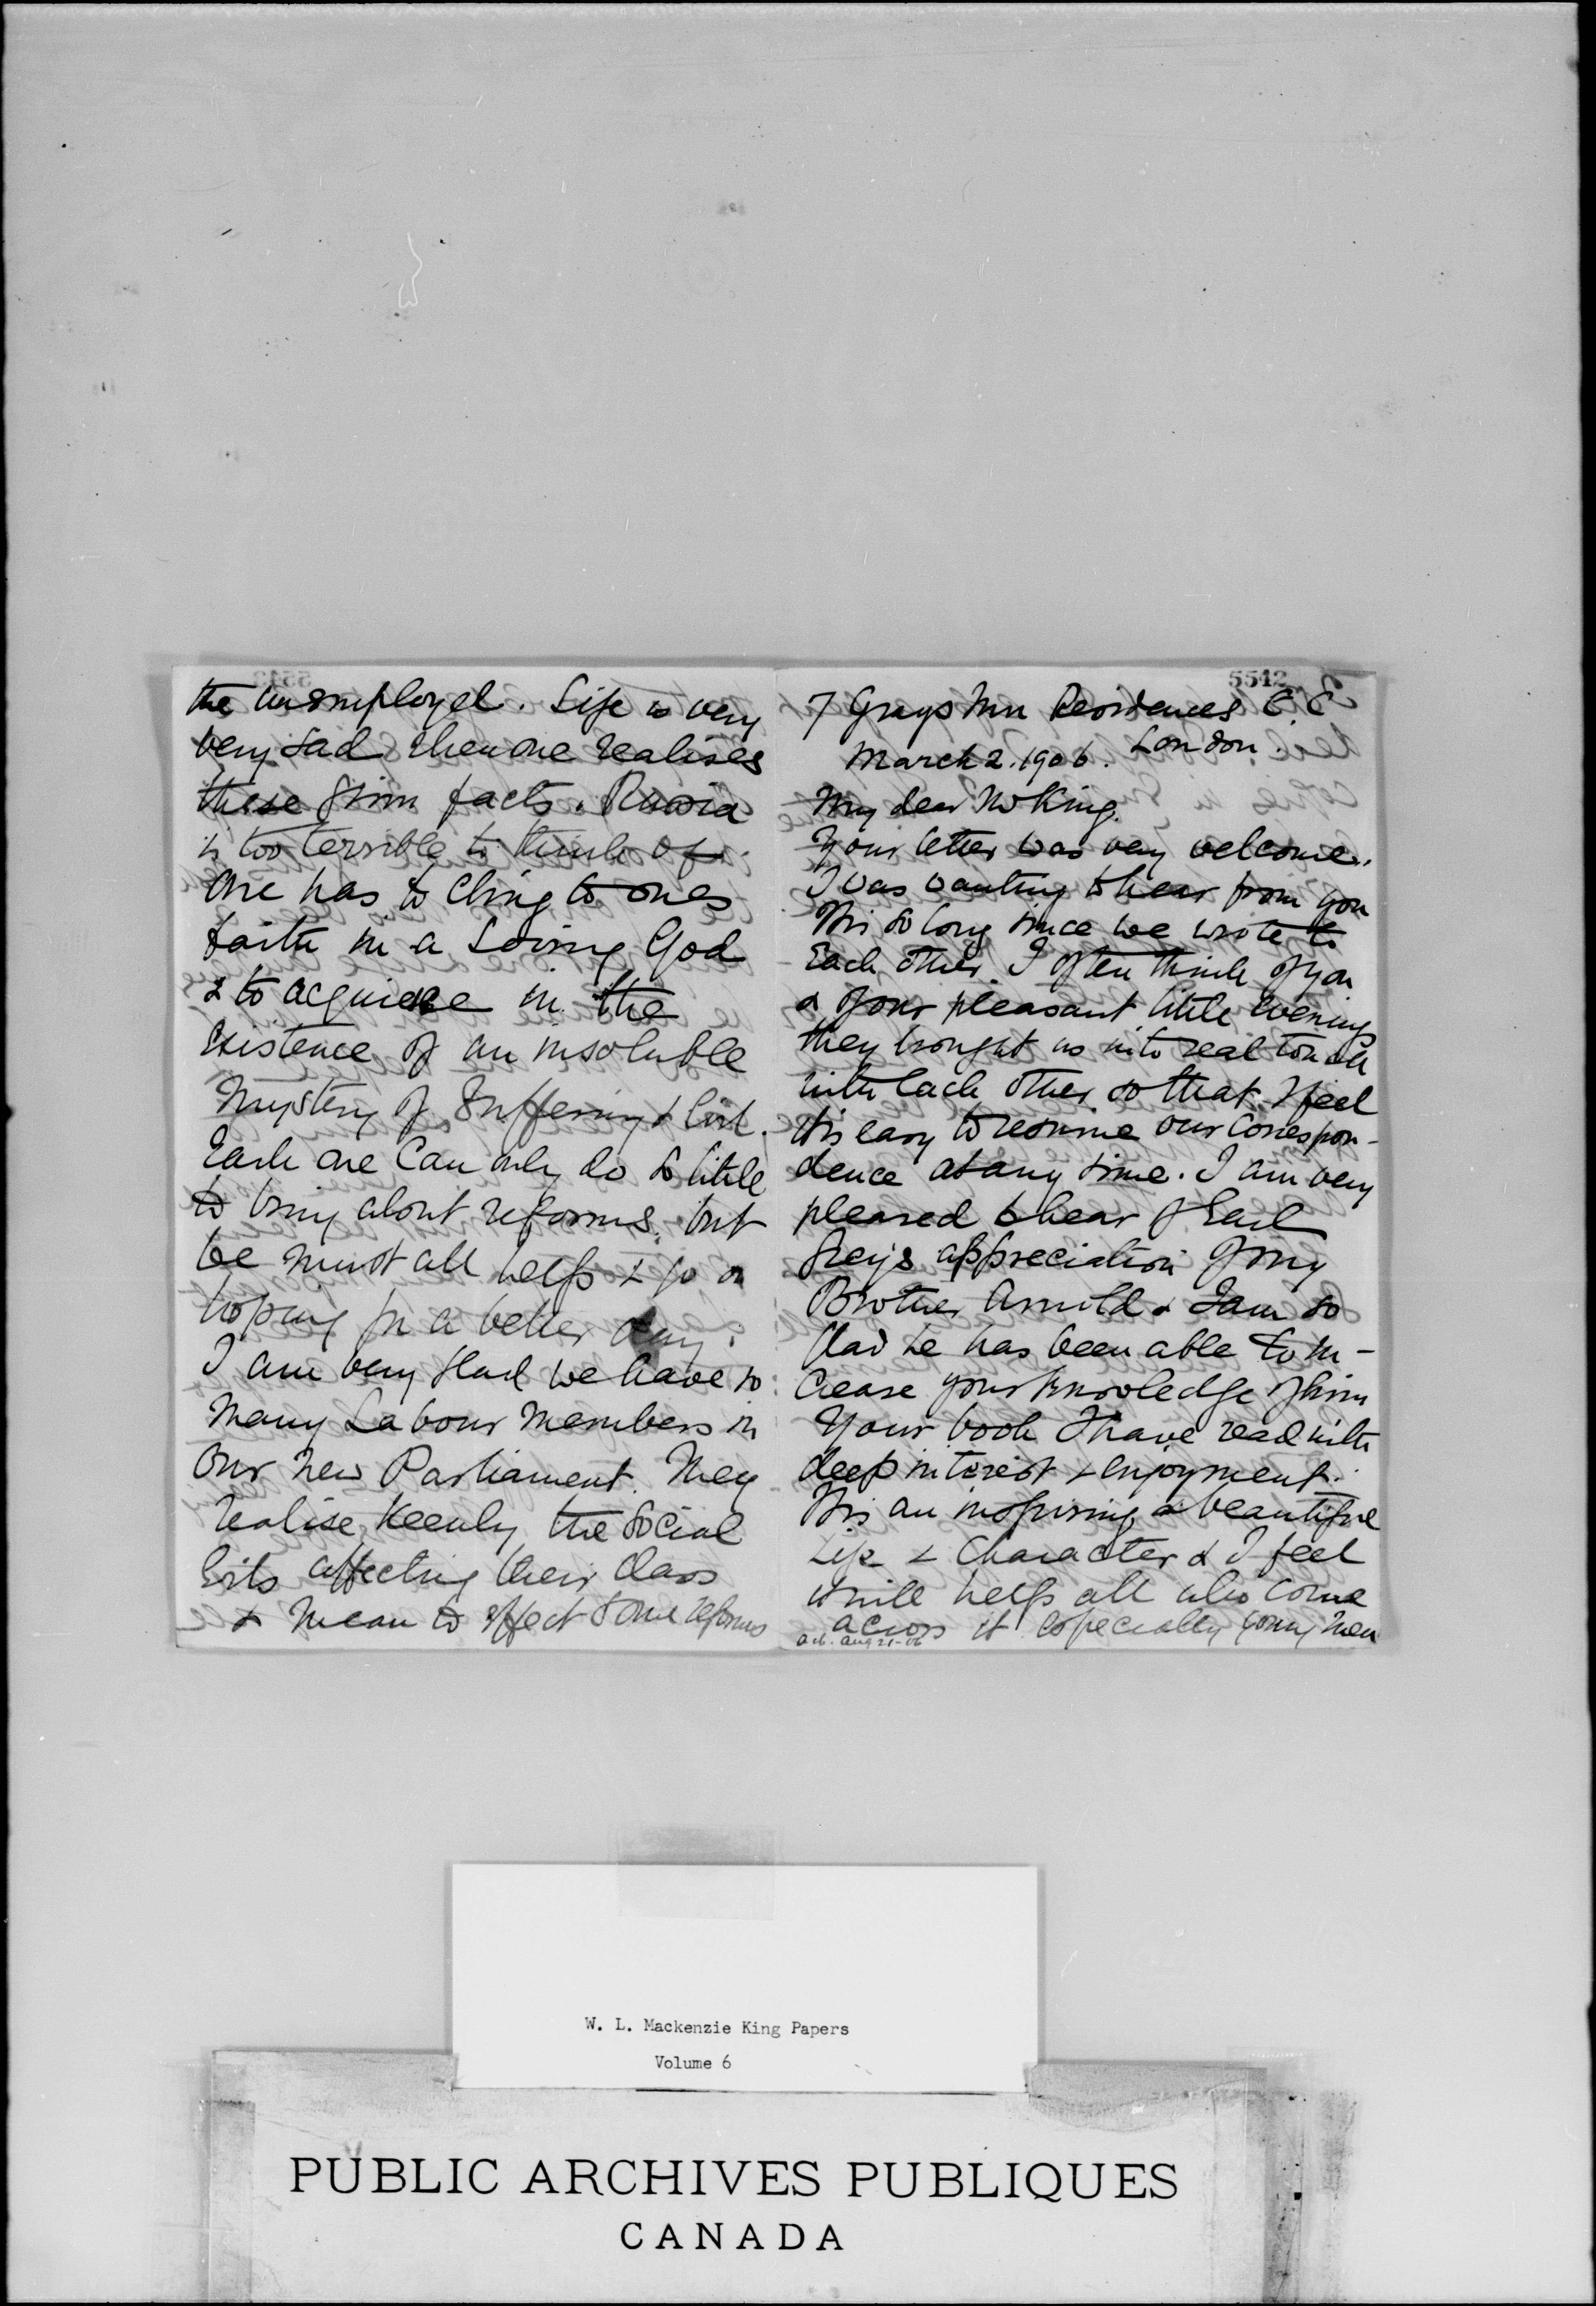 5542
7 Grays Inn Residences E.C
London.
March 2. 1906.
My dear Mr King.
Your letter was very welcome.
I was wanting to hear from you
Tis so long since we wrote to
Each other I often think of you
& of our pleasant little evenings
they brought us into real touch
with Each other so that I feel
tis easy to resume our Correspon-
dence at any time. I am very
pleased to hear of Earl
Grey's appreciation of my
Brother Arnold & I am so
Glad he has been able to in-
crease your knowledge of him
Your book I have read with
deep interest & enjoyment.
Tis an inspiring & beautiful
Life & Character & I feel
it will help all who come
across it especially young Men
ack. Aug 21-06
the unemployed. Life is very
very sad when one realises
these grim facts. Russia
is too terrible to think of.
One has to cling to ones
faith in a Loving God
& to acquiesce in the
Existence of an insoluble
Mystery of Suffering &
Each one Can only do so little
to bring about reforms. but
we must all help & go on
hoping for a better day.
I am very glad we have so
Many Labour Members in
Our New Parliament. They
realise keenly the Social
Evils affecting their Class
& mean to effect some reforms
W. L. Mackenzie King Papers
Volume 6
PUBLIC ARCHIVES PUBLIQUES
CANADA